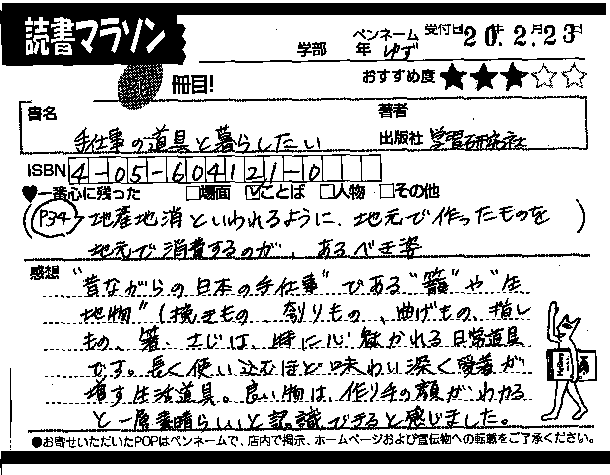 読書マラソン
学部 年 ペンネーム ゆず 受付日 20年.2.月23日
冊目!
おすすめ度 ★★★☆☆
書名 手仕事の道具と暮らしたい
著者
出版社 学習研究社
ISBN 4-05-604121-0
♥一番心に残った □場面 ☑ことば □人物 □その他
(P34 地産地消といわれるように、地元で作ったものを
地元で消費するのが、あるべき姿)
感想 "昔ながらの日本の手仕事"である"籠"や"生
地物"(挽きもの、刳りもの、曲げもの、指し
もの、箸、さじは、時に心魅かれる日常道具
です。長く使い込むほど味わい深く愛着が
増す生活道具。良い物は、作り手の顔がわかる
と一層素晴らしいと認識できると感じました。
●お寄せいただいたPOPはペンネームで、店内で掲示、ホームページおよび宣伝物への転載をご了承ください。